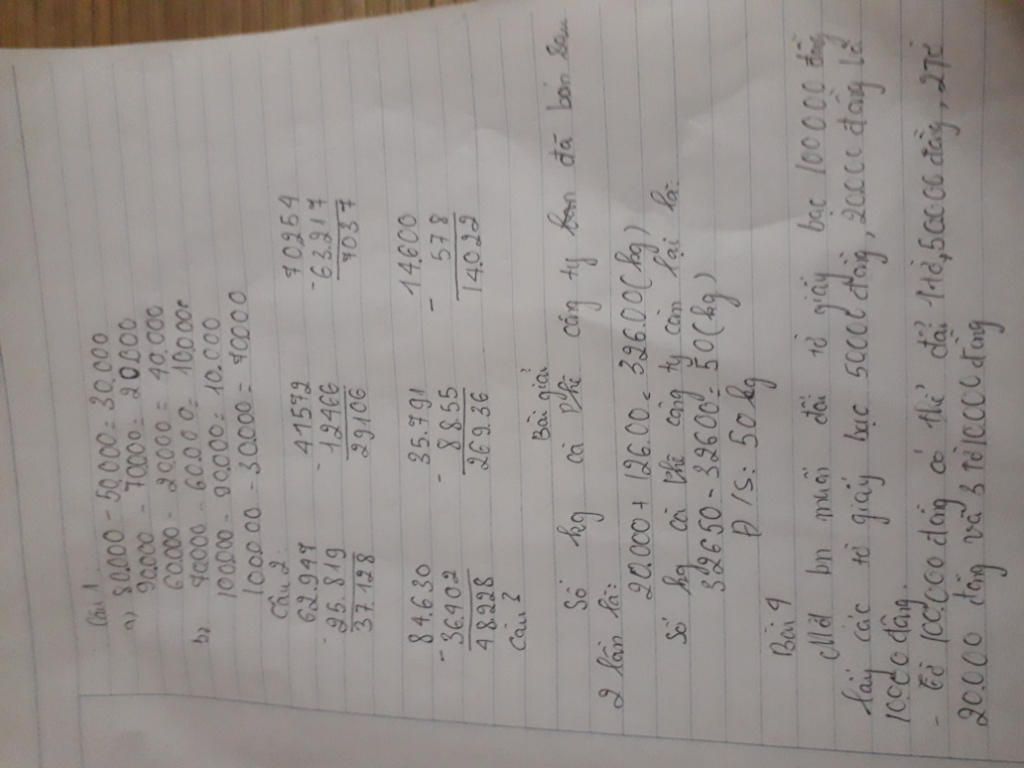 Câu 1
a) 80.000 - 50.000 = 30.000
90.000 - 70000 = 20.000
60000 - 20000 = 40.000
b, 70000 - 60.000 = 10.000
100.000 - 90.000 = 10.000
100.000 - 30.000 = 70000
Câu 2:
62.947 41572 70254
- 25.819 - 12466 - 63.217
37.128 29106 7037
84.630 35.791 14.600
- 36.402 - 8855 - 578
48.228 26936 14022
Câu 3
Bài giải
Số kg cà phê công ty đã bán sau
2 lần là:
20.000 + 12600 = 32600 (kg)
Số kg cà phê công ty còn lại là
32650 - 32600 = 50 (kg)
Đ/S: 50kg
Bài 4
Mẹ bn muốn đổi tờ giấy bạc 100000 đồng
lấy các tờ giấy bạc 50000 đồng, 20000 đồng là
10000 đồng.
- Tờ 100000 đồng có thể đổi 1 tờ 50000 đồng, 2 tờ
20000 đồng và 3 tờ 1000 đồng